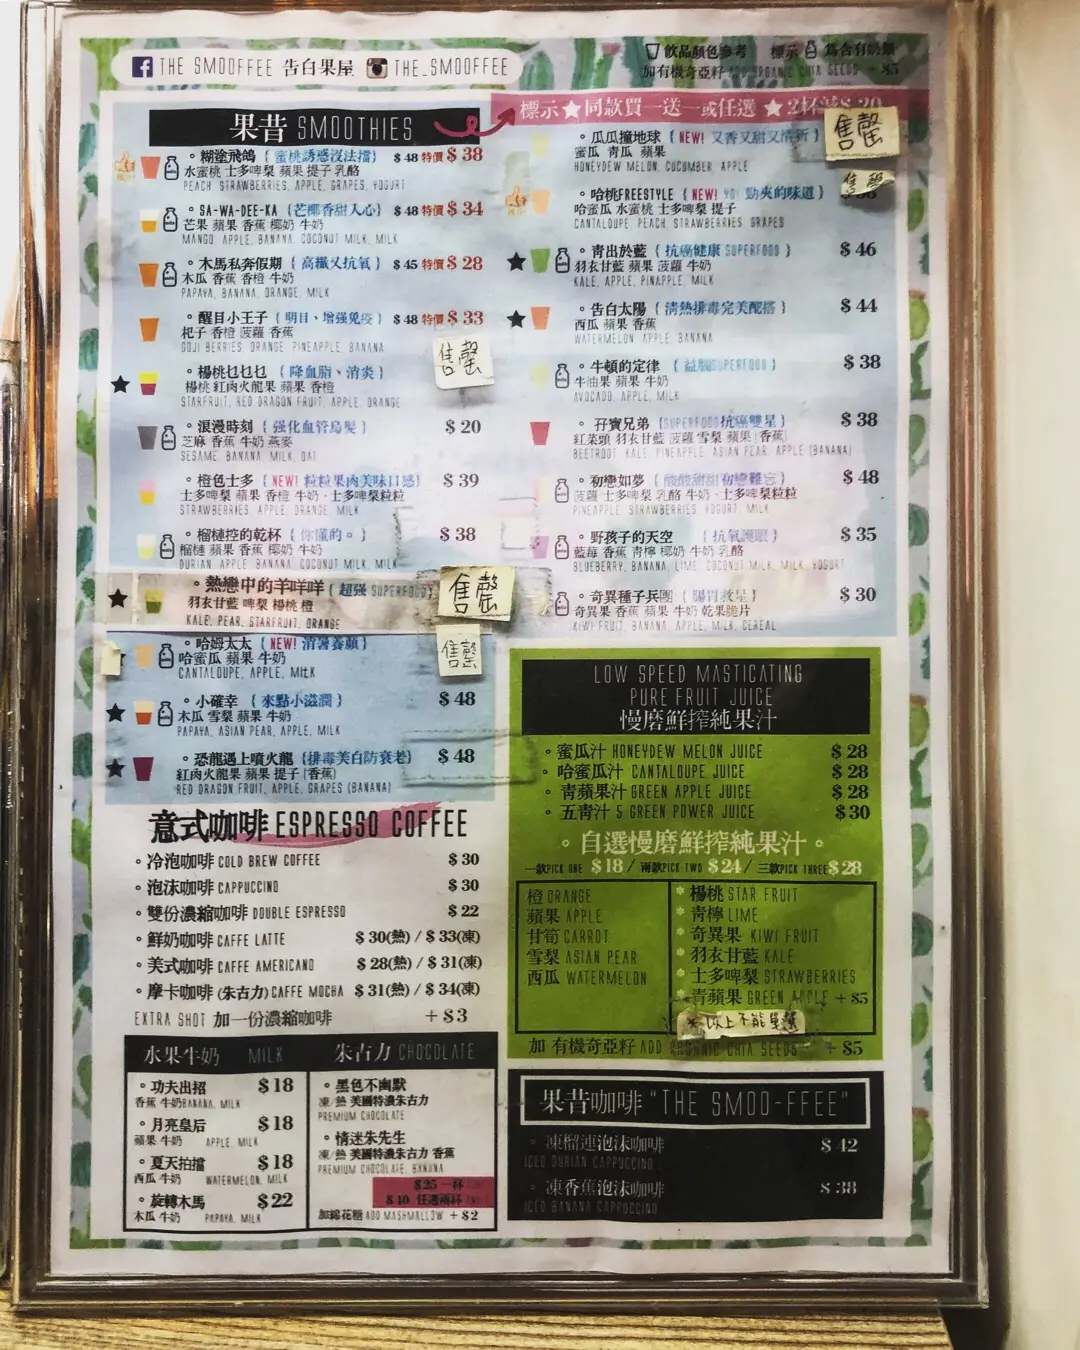 THE SMOOFFEE 告白果屋 THE_SMOOFFEE
飲品顏色參考 標示 為含有奶類
加有機奇亞籽 ADD ORGANIC CHIA SEEDS + $5
果昔 SMOOTHIES
標示★同款買一送一或任選 ★2杯減$ 20
。糊塗飛鴿 { 蜜桃誘惑沒法擋} $ 48 特價 $ 38
水蜜桃 士多啤梨 蘋果 提子 乳酪
PEACH, STRAWBERRIES, APPLE, GRAPES, YOGURT
。SA-WA-DEE-KA {芒椰香甜入心} $ 48 特價 $ 34
芒果 蘋果 香蕉 椰奶 牛奶
MANGO, APPLE, BANANA, COCONUT MILK, MILK
。木馬私奔假期 { 高纖又抗氧 } $ 45 特價 $ 28
木瓜 香蕉 香橙 牛奶
PAPAYA, BANANA, ORANGE, MILK
。醒目小王子 { 明目、增强免疫 } $ 48 特價 $ 33
杞子 香橙 菠蘿 香蕉
GOJI BERRIES, ORANGE, PINEAPPLE, BANANA
售罄
★ 。楊桃乜乜乜 { 降血脂、消炎 }
楊桃 紅肉火龍果 蘋果 香橙
STARFRUIT, RED DRAGON FRUIT, APPLE, ORANGE
。浪漫時刻 { 强化血管烏髮 } $ 20
芝麻 香蕉 牛奶 燕麥
SESAME, BANANA, MILK, OAT
。橙色士多 { NEW! 粒粒果肉美味口感} $ 39
士多啤梨 蘋果 香橙 牛奶、士多啤梨粒粒
STRAWBERRIES, APPLE, ORANGE, MILK
。榴槤控的乾杯 { 你懂的。 } $ 38
榴槤 蘋果 香蕉 椰奶 牛奶
DURIAN, APPLE, BANANA, COCONUT MILK, MILK
★ 。熱戀中的羊咩咩 { 超强 SUPERFOOD 售罄
羽衣甘藍 啤梨 楊桃 橙
KALE, PEAR, STARFRUIT, ORANGE
。哈姆太太 { NEW! 消暑養顏 } 售罄
哈蜜瓜 蘋果 牛奶
CANTALOUPE, APPLE, MILK
★ 。小確幸 { 來點小滋潤 } $ 48
木瓜 雪梨 蘋果 牛奶
PAPAYA, ASIAN PEAR, APPLE, MILK
★ 。恐龍遇上噴火龍 {排毒美白防衰老} $ 48
紅肉火龍果 蘋果 提子 (香蕉)
RED DRAGON FRUIT, APPLE, GRAPES (BANANA)
。瓜瓜撞地球 { NEW! 又香又甜又清新 } 售罄
蜜瓜 青瓜 蘋果
HONEYDEW MELON, CUCUMBER, APPLE
售罄
。哈桃FREESTYLE { NEW! YO! 勁夾的味道 }
哈蜜瓜 水蜜桃 士多啤梨 提子
CANTALOUPE, PEACH, STRAWBERRIES, GRAPES
★ 。青出於藍 { 抗癌健康 SUPERFOOD } $ 46
羽衣甘藍 蘋果 菠蘿 牛奶
KALE, APPLE, PINAPPLE, MILK
★ 。告白太陽 { 清熱排毒完美配搭 } $ 44
西瓜 蘋果 香蕉
WATERMELON, APPLE, BANANA
。牛頓的定律 { 益腦SUPERFOOD } $ 38
牛油果 蘋果 牛奶
AVOCADO, APPLE, MILK
。孖寶兄弟 {SUPERFOOD抗癌雙星 } $ 38
紅菜頭 羽衣甘藍 菠蘿 雪梨 蘋果 (香蕉)
BEETROOT, KALE, PINEAPPLE, ASIAN PEAR, APPLE (BANANA)
。初戀如夢 { 酸酸甜甜初戀難忘 } $ 48
菠蘿 士多啤梨 乳酪 牛奶、士多啤梨粒粒
PINEAPPLE, STRAWBERRIES, YOGURT, MILK
。野孩子的天空 { 抗氧護眼 } $ 35
藍莓 香蕉 青檸 椰奶 牛奶 乳酪
BLUEBERRY, BANANA, LIME, COCONUT MILK, MILK, YOGURT
。奇異種子兵團 { 腸胃救星 } $ 30
奇異果 香蕉 蘋果 牛奶 乾果脆片
KIWI FRUIT, BANANA, APPLE, MILK, CEREAL
意式咖啡 ESPRESSO COFFEE
。冷泡咖啡 COLD BREW COFFEE $ 30
。泡沫咖啡 CAPPUCCINO $ 30
。雙份濃縮咖啡 DOUBLE ESPRESSO $ 22
。鮮奶咖啡 CAFFE LATTE $ 30(熱) / $ 33(凍)
。美式咖啡 CAFFE AMERICANO $ 28(熱) / $ 31(凍)
。摩卡咖啡 (朱古力) CAFFE MOCHA $ 31(熱) / $ 34(凍)
EXTRA SHOT 加一份濃縮咖啡 + $ 3
水果牛奶 MILK
。功夫出招 $ 18
香蕉 牛奶 BANANA, MILK
。月亮皇后 $ 18
蘋果 牛奶 APPLE, MILK
。夏天拍擋 $ 18
西瓜 牛奶 WATERMELON, MILK
。旋轉木馬 $ 22
木瓜 牛奶 PAPAYA, MILK
朱古力 CHOCOLATE
。黑色不幽默
凍/熱 美國特濃朱古力
PREMIUM CHOCOLATE
。情迷朱先生
凍/熱 美國特濃朱古力 香蕉
PREMIUM CHOCOLATE, BANANA
$ 25 一杯
$ 40 任選兩杯
加綿花糖 ADD MASHMALLOW + $ 2
LOW SPEED MASTICATING
PURE FRUIT JUICE
慢磨鮮搾純果汁
。蜜瓜汁 HONEYDEW MELON JUICE $ 28
。哈蜜瓜汁 CANTALOUPE JUICE $ 28
。青蘋果汁 GREEN APPLE JUICE $ 28
。五青汁 5 GREEN POWER JUICE $ 30
。自選慢磨鮮搾純果汁。
一款PICK ONE $ 18 / 兩款PICK TWO $ 24 / 三款PICK THREE $ 28
橙 ORANGE
蘋果 APPLE
甘筍 CARROT
雪梨 ASIAN PEAR
西瓜 WATERMELON
* 楊桃 STAR FRUIT
* 青檸 LIME
* 奇異果 KIWI FRUIT
* 羽衣甘藍 KALE
* 士多啤梨 STRAWBERRIES
* 青蘋果 GREEN APPLE + $5
*以上不能單選
加 有機奇亞籽 ADD ORGANIC CHIA SEEDS + $5
果昔咖啡 "THE SMOO-FFEE"
。凍榴連泡沫咖啡 $ 42
ICED DURIAN CAPPUCCINO
。凍香蕉泡沫咖啡 $ 38
ICED BANANA CAPPUCCINO